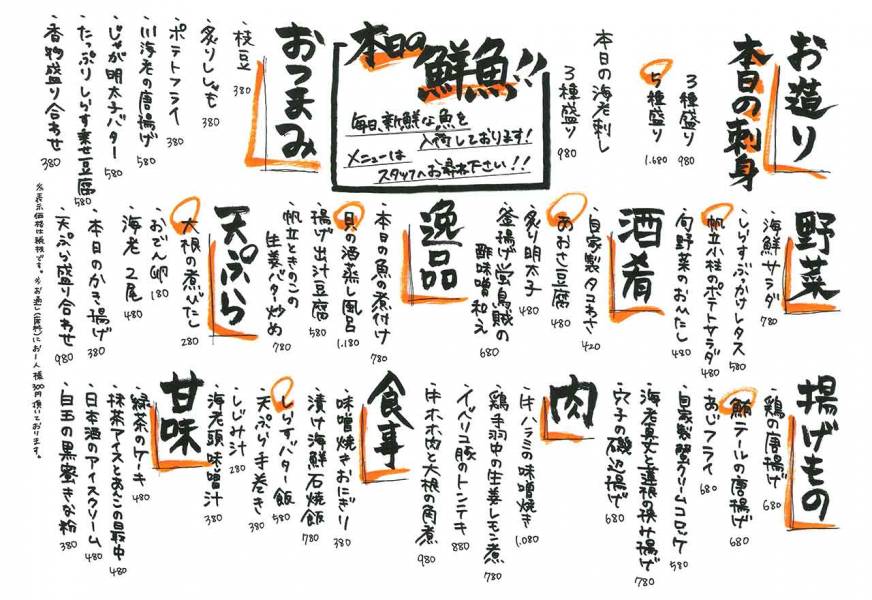 お造り
本日の刺身
3種盛り 980
5種盛り 1.680
本日の海老刺し
3種盛り 980
本日の鮮魚!!
毎日、新鮮な魚を
入荷しております!
メニューは
スタッフへお尋ね下さい!!
おつまみ
・枝豆 380
・炙りししゃも 380
・ポテトフライ 380
・川海老の唐揚げ 580
・じゃが明太子バター 580
・たっぷりしらす乗せ豆腐 580
・香物盛り合わせ 380
野菜
・海鮮サラダ 780
・しらすぶっかけレタス 580
・帆立小柱のポテトサラダ 480
・旬野菜のおひたし 480
酒肴
・自家製タコわさ 420
・あおさ豆腐 480
・炙り明太子 480
・釜揚げ蛍烏賊の
酢味噌和え 680
逸品
・本日の魚の煮付け 780
・貝の酒蒸し風呂 1.180
・揚げ出汁豆腐 580
・帆立ときのこの
生姜バター炒め 780
・大根の煮びたし 280
・おでん卵 180
天ぷら
・海老2尾 480
・本日のかき揚げ 380
・天ぷら盛り合わせ 980
揚げもの
・鶏の唐揚げ 680
・鮪テールの唐揚げ 680
・あじフライ 680
・自家製蟹クリームコロッケ 580
・海老真丈と蓮根の挟サ揚げ 780
・穴子の磯辺揚げ 680
肉
・牛ハラミの味噌焼き 1.080
・鶏手羽中の生姜レモン煮 780
・イベリコ豚のトンテキ 880
・牛ホホ肉と大根の角煮 980
食事
・味噌焼きおにぎり 380
・漬け海鮮石焼飯 780
・しらすバター飯 580
・天ぷら手巻き 380
・しじみ汁 280
・海老頭味噌汁 380
甘味
・緑茶のケーキ 480
・抹茶アイスとあんこの最中 480
・日本酒のアイスクリーム 480
・白玉の黒蜜きな粉 380
※表示価格は税抜です。※お通し(有料)にお一人様300円頂いております。